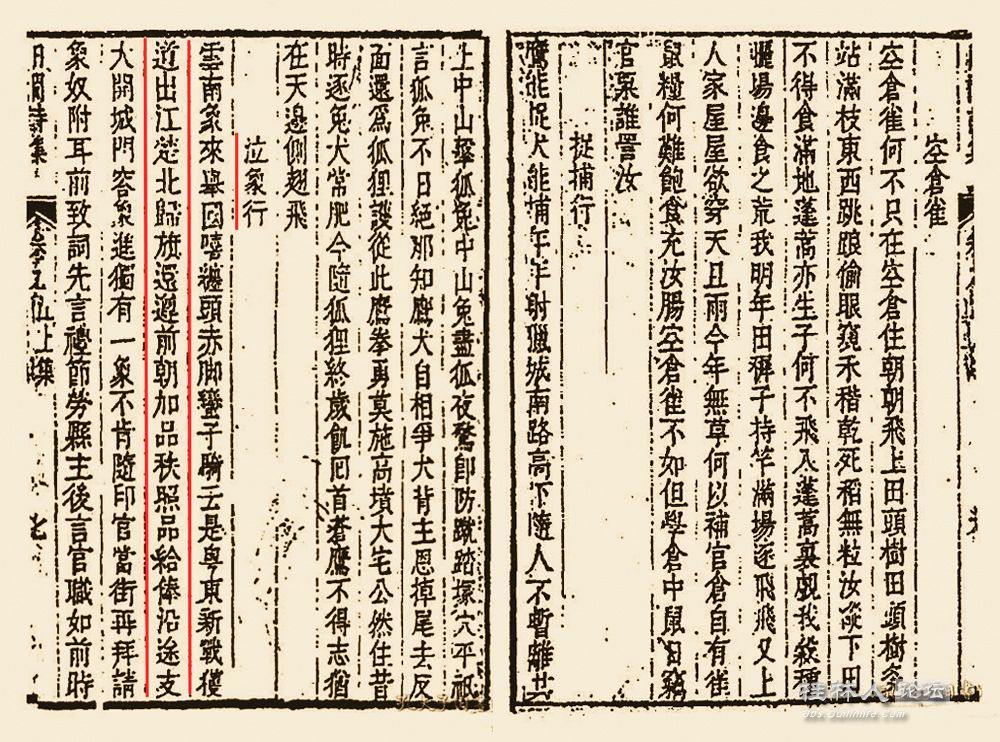 空倉雀
空倉雀何不只在空倉住朝朝飛上田頭樹田頭樹多
站滿枝東西跳踉偷眼窺禾稭乾死稻無粒汝從下田
不得食滿地蓬蒿亦生子何不飛入蓬蒿裏覷我殺種
曬場邊食之荒我明年田稚子持竿滿場逐飛飛又上
人家屋屋欲穿天丑雨今年無草何以補官倉自有雀
鼠糧何難飽食充汝腸空倉雀不如但學倉中鼠日竊
官粟誰詈汝
捉捕行
鷹能捉犬能捕年年射獵城南路高下隨人不暫離
上中山搏狐兔中山兔盡狐夜驚即防蹴踏塚穴平祇
言狐兔不日絕那知鷹犬自相爭犬背主恩掉尾去反
面還爲狐狸護從此鷹拳勇莫施高墳大宅公然住昔
時逐兔犬常肥今隨狐狸終歲飢回首蒼鷹不得志猶
在天邊側翅飛
泣象行
雲南象來舉國嘻纏頭赤脚蠻子騎云是粤東新戰獲
道出江楚北歸旗迢遞前朝加品秩照品給俸沿途支
大開城門容象進獨有一象不肯隨印官當街再拜請
象奴附耳前致詞先言禮節勞縣主後言官職如前時
日閒詩集
上集
七
桂林人论坛
bbs.guilinlife.com